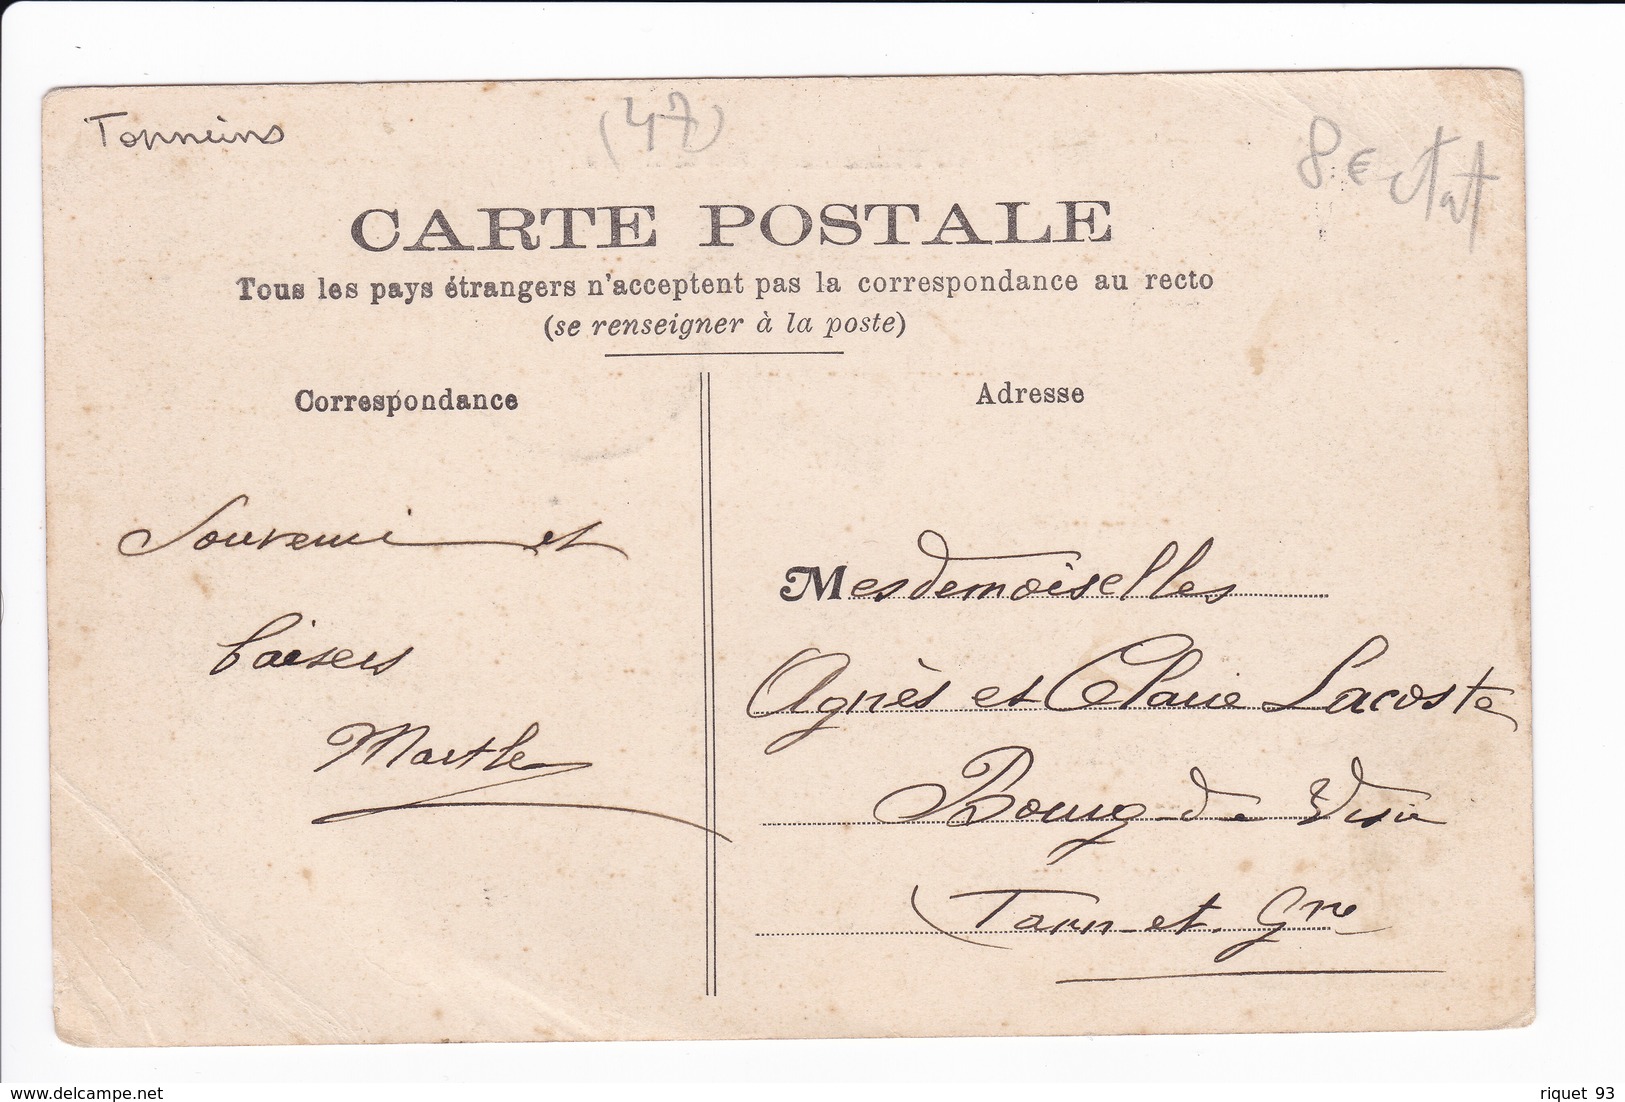 Tonneins
(47)
8 € état
CARTE POSTALE
Tous les pays étrangers n'acceptent pas la correspondance au recto
(se renseigner à la poste)
Correspondance
Adresse
Souvenir et
baisers
Marthe
Mesdemoiselles
Agnès et Claire Lacoste
Bourg-de Visa
Tarn-et-Gne
riquet 93